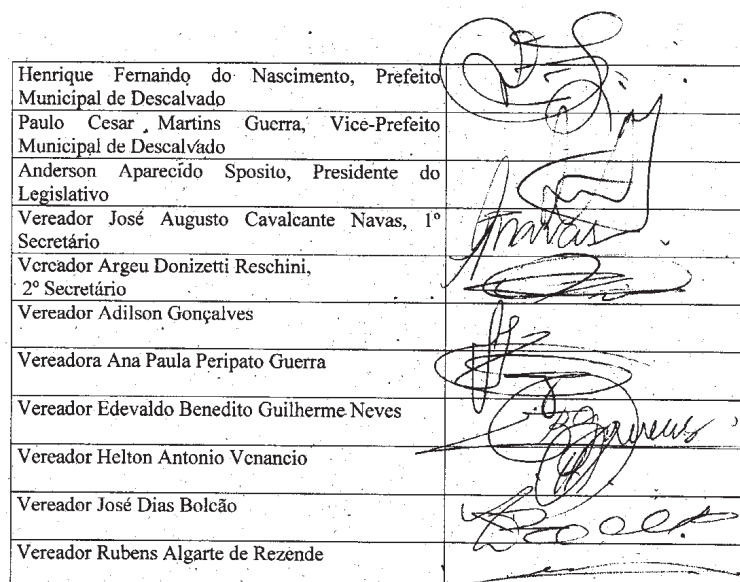 Henrique Fernando do Nascimento, Prefeito
Municipal de Descalvado
Paulo Cesar Martins Guerra, Vice-Prefeito
Municipal de Descalvado
Anderson Aparecido Sposito, Presidente do
Legislativo
Vereador José Augusto Cavalcante Navas, 1º
Secretário
Vereador Argeu Donizetti Reschini,
2º Secretário
Vereador Adilson Gonçalves
Vereadora Ana Paula Peripato Guerra
Vereador Edevaldo Benedito Guilherme Neves
Vereador Helton Antonio Venancio
Vereador José Dias Bolcão
Vereador Rubens Algarte de Rezende